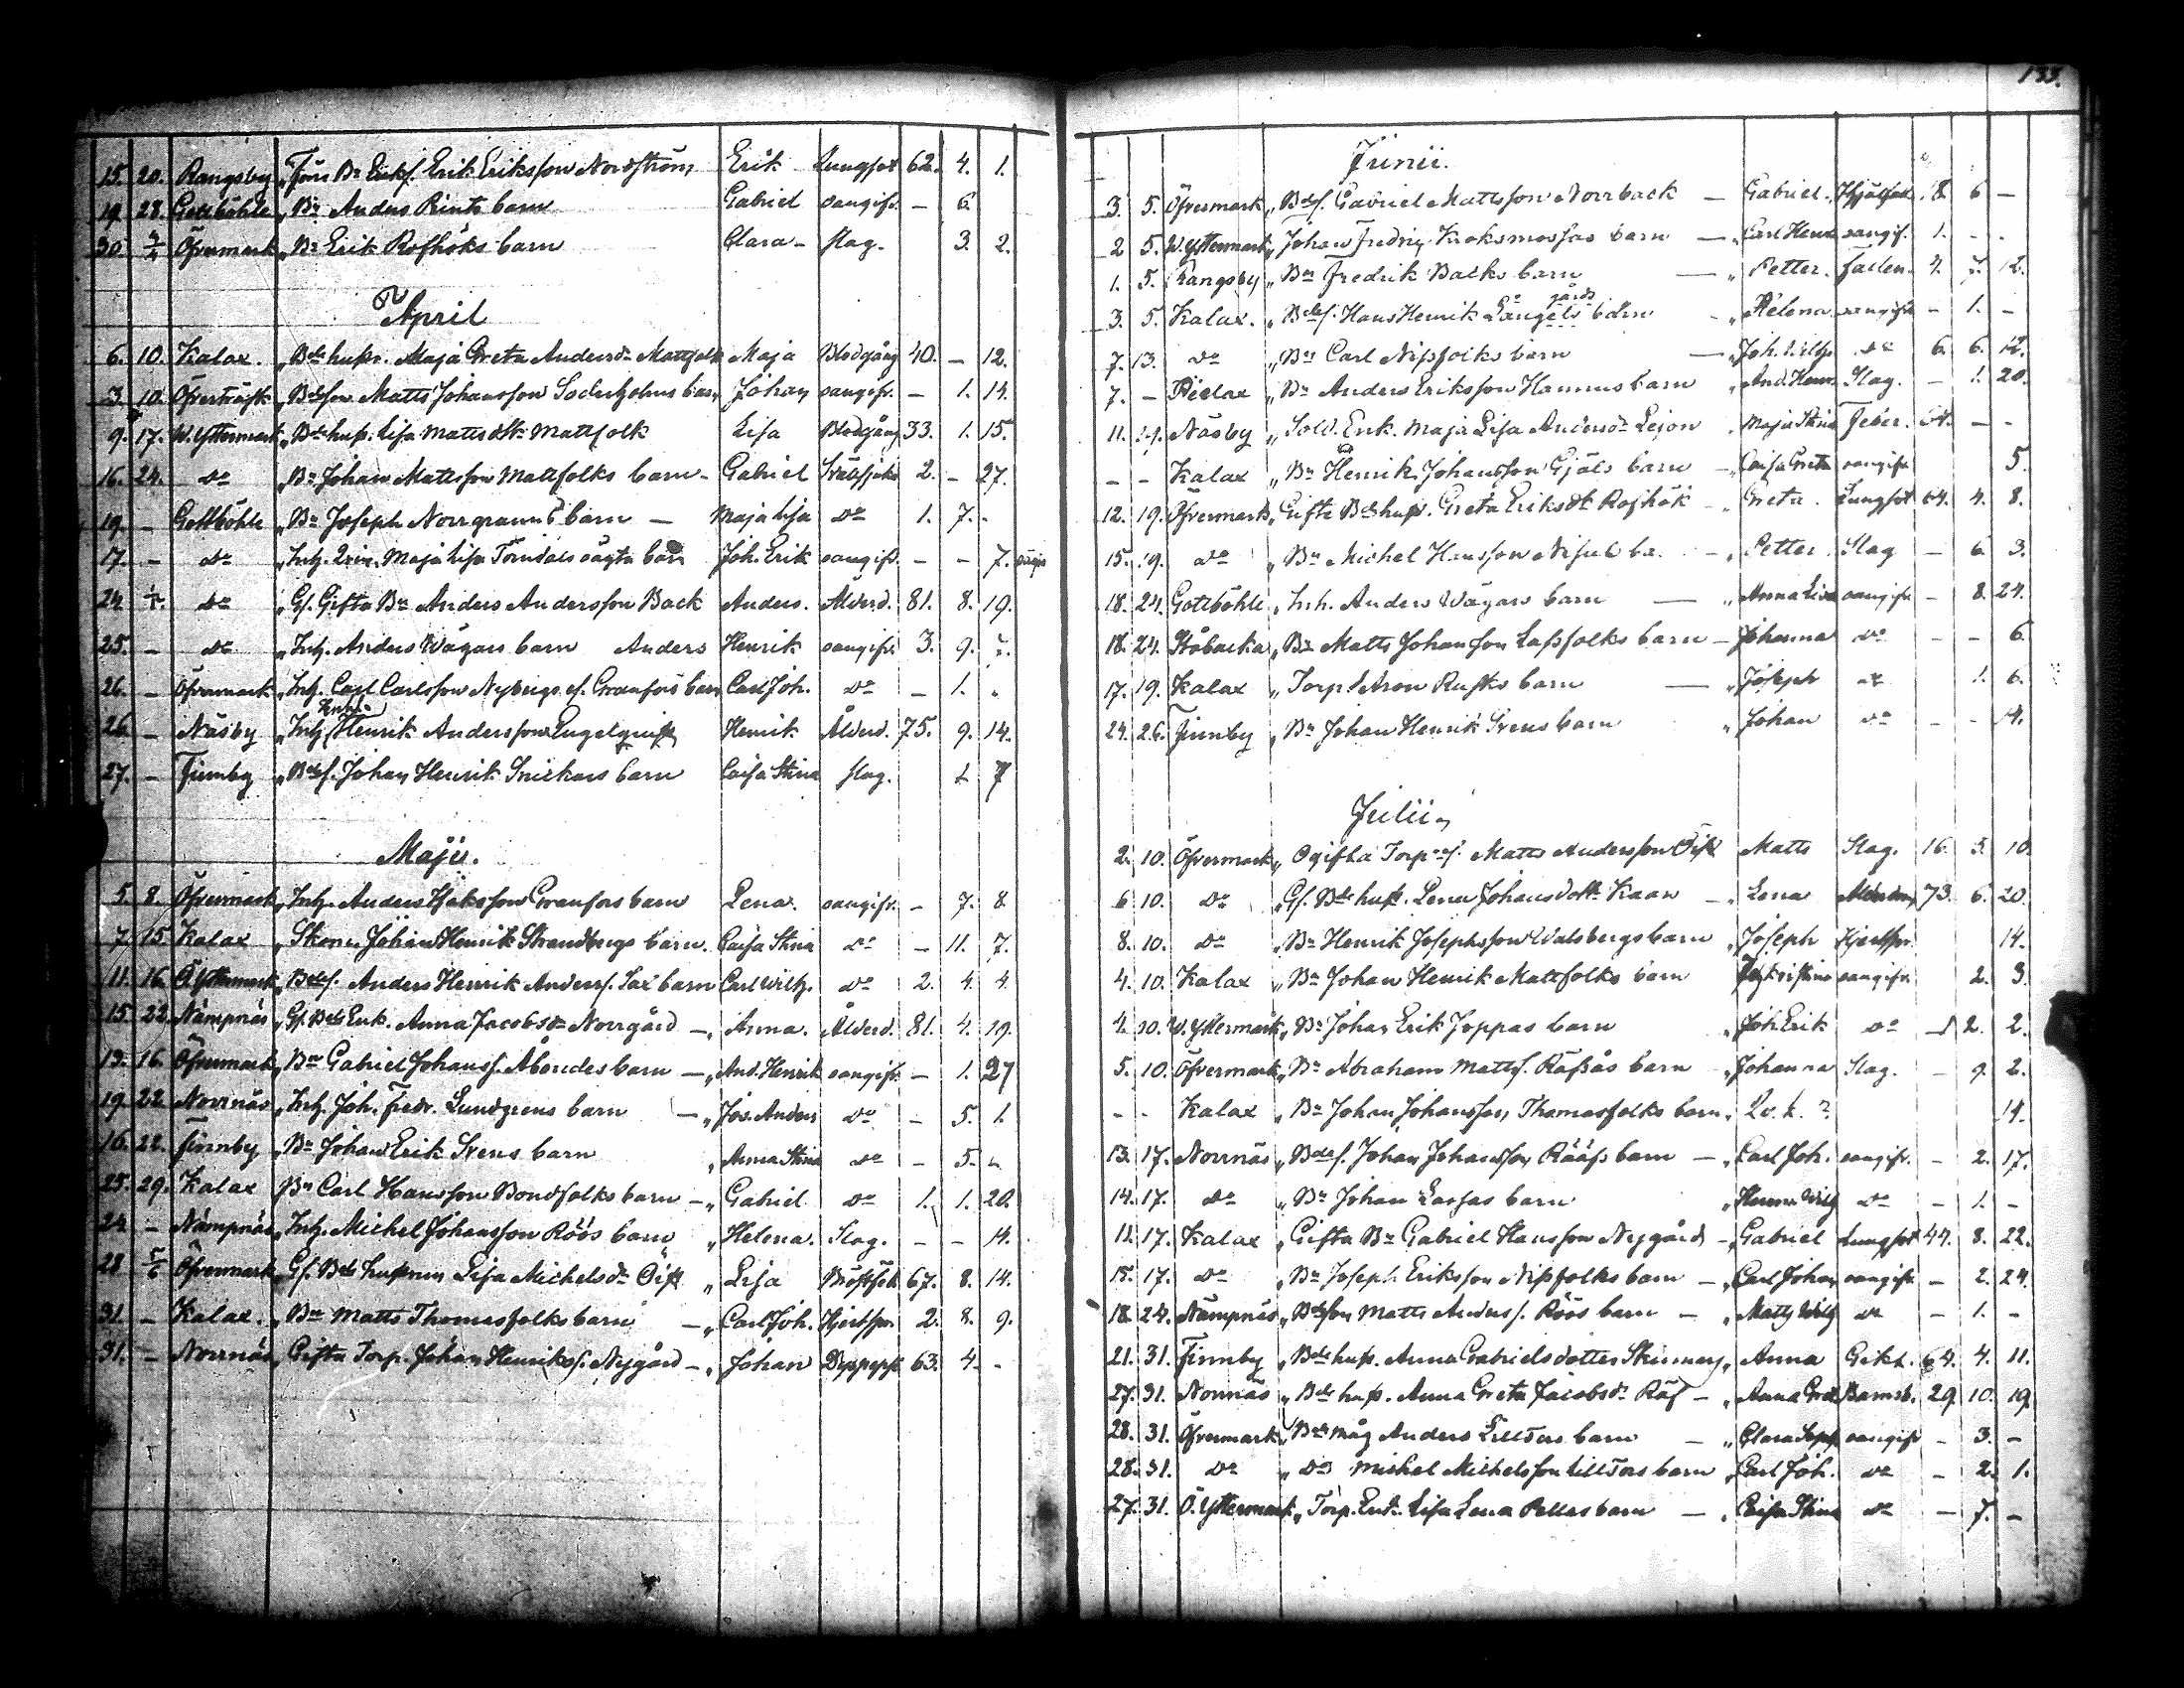 133.
15. 20. Rangsby „ Bn Erik Eriksson Nordström Erik Lungsot 62. 4. 1.
19. 28. Gottböhle „ Bn Anders Rints barn Gabriel oangifv. — 6.
30. Öfvermark „ Bn Erik Rofhöks barn Clara — slag. 3. 2.
April
6. 10. Kalax. „ Bde hustr. Maja Greta Andersdr Mattfolk Maja Blodgång 40. — 12.
3. 10. Öfverträsk „ Bdeson Matts Johansson Söderholms barn Johan oangifv. — 1. 14.
9. 17. W. Yttermark „ Bde hust. Lisa Mattsdtr Mattfolk Lisa Blodgång 33. 1. 15.
16. 24. do „ Bn Johan Mattsson Mattfolks barn — Gabriel 2. — 27.
19. — Gottböhle „ Bn Joseph Norrgranns barn — Maja Lisa do 1. 7. -
17. — do „ Inh. Maja Lisa Törndals oägta barn Joh. Erik oangifv. — — 7.
24. do „ Gl. Gifta Bn Anders Andersson Back Anders. Ålderd. 81. 8. 19.
25. — do „ Inh. Anders Wägars barn Anders Henrik oangifv. 3. 9.
26. — Öfvermark „ Inh. Carl Carlsson Nybergs barn Carl Joh. do — 1. -
26 — Näsby „ Inh. Henrik Andersson Engelqvist Henrik Ålderd. 75. 9. 14.
27. — Finnby „ Bdes. Johan Henrik Snickars barn Caisa Stina slag. 7
Maji.
5. 8. Öfvermark „ Inh. Anders Isaksson Granfors barn Lena. oangifv. — 7. 8
7. 15. Kalax „ Johan Henrik Strandbergs barn. Caisa Stina do — 11. 7.
11. 16. Ö. Yttermark „ Bdes. Anders Henrik Anderss. Sax barn Carl Wilh. do 2. 4. 4.
15. 22. Nämpnäs „ Gl. Bde Enk. Anna Jacobsdr Norrgård — „ Anna. Ålderd. 81. 4. 19.
13. 16. Öfvermark „ Bn Gabriel Johanss. Åbondes barn — „ And. Henrik oangifv. — 1. 27
19. 22. Norrnäs „ Inh. Joh. Fredr. Lundgrens barn — „ Jos. Anders do — 5. 1.
16. 22. Finnby „ Bn Johan Erik Svens barn „ Anna Stina do — 5.
25. 29. Kalax Bn Carl Hansson Bondfolks barn — „ Gabriel do 1. 1. 20.
24. — Nämpnäs „ Inh. Michel Johansson Röös barn „ Helena. Slag. — — 14.
28 5/6 Öfvermark „ Gl. Bde hustrun Lisa Michelsdr Öist „ Lisa 67. 8. 14.
31. — Kalax. „ Bn Matts Thomasfolks barn — „ Carl Joh. 2. 8. 9.
31. — Norrnäs „ Gifta Torp. Johan Henrikss. Nygård — „ Johan 63. 4. -
Junii.
3. 5. Öfvermark „ Bdes. Gabriel Mattsson Norrback — Gabriel. 18. 6 —
2 5. W. Yttermark „ Johan Fredrig Kroksmossas barn — „ Carl Henr. oangif. 1. - -
1. 5. Rangsby „ Bn Fredrik Backs barn — „ Petter. 4. 7. 12.
3. 5. Kalax. „ Bdes. Hans Henrik Långgårds barn — „ Helena oangifv. — 1. -
7. 13. do „ Bn Carl Nissfolks barn — „ Joh. Wilh. do 6. 6. 12.
7. — Pielax „ Bn Anders Eriksson Hannus barn „ And. Henr. Slag. — 1. 20.
11. 19. Näsby „ Sold. Enk. Maja Lisa Andersdr Lejon Maja Feber. 54. - -
- - Kalax „ Bn Henrik Johansson Gjäls barn — „ Caisa Greta oangifv. 5.
12. 19. Öfvermark „ Gifta Bde hust. Greta Eriksdtr Rofhök — „ Greta. Lungsot 64. 4. 8.
15. 19. do „ Bn Michel Hansson — „ Petter. Slag — 6. 3.
18. 24. Gottböhle „ Inh. Anders Wägars barn — „ Anna Lisa oangifv. — 8. 24.
18. 24. Ståbacka „ Bn Matts Johansson Lassfolks barn — Johanna do — — 6.
17. 19. Kalax „ Torp. Aron Rusks barn — „ Joseph do 1. 6.
24. 26. Finnby „ Bn Johan Henrik Svens barn „ Johan do — — 14.
Julii
2. 10. Öfvermark „ Ogifta Torp. s. Matts Andersson Öist Matts Slag. 16. 3. 10
6 10. do „ Gl. Bde hust. Lena Johansdotr Kaan — „ Lena 73. 6. 20.
8. 10. do „ Bn Henrik Josephsson Walsbergs barn „ Joseph 14.
4. 10. Kalax „ Bn Johan Henrik Mattfolks barn oangifv. 2. 3.
4. 10. W. Yttermark „ Bn Johan Erik Joppas barn „ Joh. Erik do — 2. 2.
5. 10. Öfvermark „ Bn Abraham Matts. Räfsås barn „ Johanna Slag. — 9. 2.
- - Kalax „ Bn Johan Johansson Thomasfolks barn „ 14.
13. 17. Norrnäs „ Bdes. Johan Johansson Rääfs barn — „ Carl Joh. oangifv. — 2. 17.
14. 17. do „ Bn Johan Lassas barn do — 1. -
11. 17. Kalax „ Gifta Bn Gabriel Hansson Nygård — „ Gabriel Lungsot 44. 8. 22.
15. 17. do „ Bn Joseph Eriksson Nissfolks barn — „ Carl Johan oangifv. — 2. 24.
18. 24. Nämpnäs „ Bdeson Matts Anders s. Röös barn — „ Matts Wilh. do — 1. -
21. 31. Finnby „ Bde hust. Anna Gabrielsdotter „ Anna Gikt. 64. 4. 11.
27. 31. Norrnäs „ Bde hust. Anna Greta Jacobsdr Räf — „ Anna Greta Barnsb. 29. 10. 19.
28. 31. Öfvermark „ Bde måg Anders Lilltors barn — „ Clara Soph. oangifv — 3. -
28. 31. do „ do Michel Michelsson Lilltors barn „ Carl Joh. do — 2. 1.
27. 31. Ö. Yttermark „ Torp. Enk. Lisa Lena Pellas barn — „ Caisa Stina do — 7. -